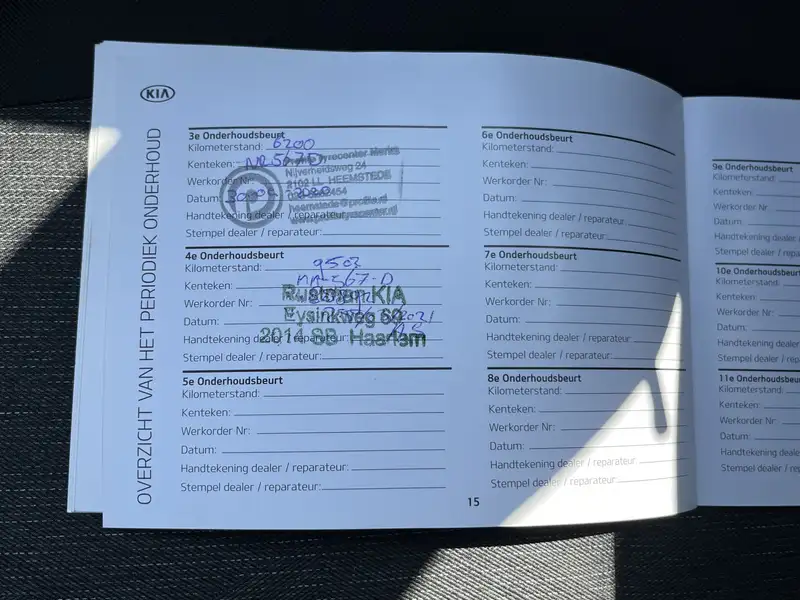 KIA
OVERZICHT VAN HET PERIODIEK ONDERHOUD
3e Onderhoudsbeurt
Kilometerstand: 6200
Kenteken:
Werkorder Nr:
Datum:
Handtekening dealer / reparateur:
Stempel dealer / reparateur:
Nijverheidsweg 24
2102 LL HEEMSTEDE
4e Onderhoudsbeurt
Kilometerstand: 9503
Kenteken:
Werkorder Nr:
Datum: 2021
Handtekening dealer / reparateur:
Stempel dealer / reparateur:
Rustman KIA
Eysinkweg 60
2014 SB Haarlem
5e Onderhoudsbeurt
Kilometerstand:
Kenteken:
Werkorder Nr:
Datum:
Handtekening dealer / reparateur:
Stempel dealer / reparateur:
6e Onderhoudsbeurt
Kilometerstand:
Kenteken:
Werkorder Nr:
Datum:
Handtekening dealer / reparateur:
Stempel dealer / reparateur:
7e Onderhoudsbeurt
Kilometerstand:
Kenteken:
Werkorder Nr:
Datum:
Handtekening dealer / reparateur:
Stempel dealer / reparateur:
8e Onderhoudsbeurt
Kilometerstand:
Kenteken:
Werkorder Nr:
Datum:
Handtekening dealer / reparateur:
Stempel dealer / reparateur:
15
9e Onderhoudsbeurt
Kilometerstand:
Kenteken:
Werkorder Nr:
Datum:
Handtekening dealer
Stempel dealer / repa
10e Onderhoudsbeu
Kilometerstand:
Kenteken:
Werkorder Nr:
Datum:
Handtekening dealer
Stempel dealer / rep
11e Onderhoudsbeu
Kilometerstand:
Kenteken:
Werkorder Nr:
Datum:
Handtekening dealer
Stempel dealer / rep